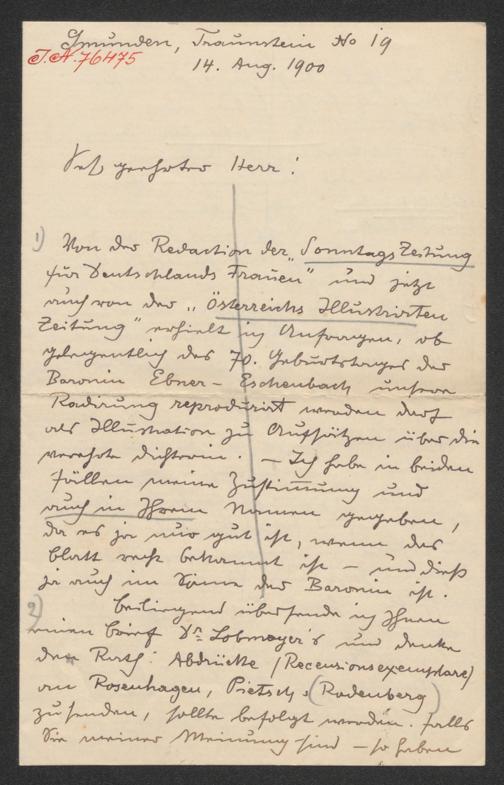 Gmunden, Traunstein No 19
J.A.76475
14. Aug. 1900
Sehr geehrter Herr!
1) Von der Redaction der „Sonntags Zeitung
für Deutschlands Frauen" und jetzt
auch von der „Österreichs Illustrirten
Zeitung" erhielt ich Anfragen, ob
gelegentlich des 70. Geburtstages der
Baronin Ebner-Eschenbach unsere
Radirung reproduzirt werden darf
als Illustration zu Aufsätzen über die
verehrte Dichterin. – Ich habe in beiden
Fällen meine Zustimmung und
auch in Ihrem Namen gegeben,
da es ja nur gut ist, wenn das
Blatt recht bekannt ist – und dieß
ja auch im Sinne der Baronin ist.
2) Beiliegend übersende ich Ihnen
einen Brief Dr. Lobmayer's und denke
der Rath: Abdrücke (Recensionsexemplare)
an Rosenhagen, Pietsch, (Rodenberg)
zu senden, sollte befolgt werden. Falls
Sie meiner Meinung sind – so haben